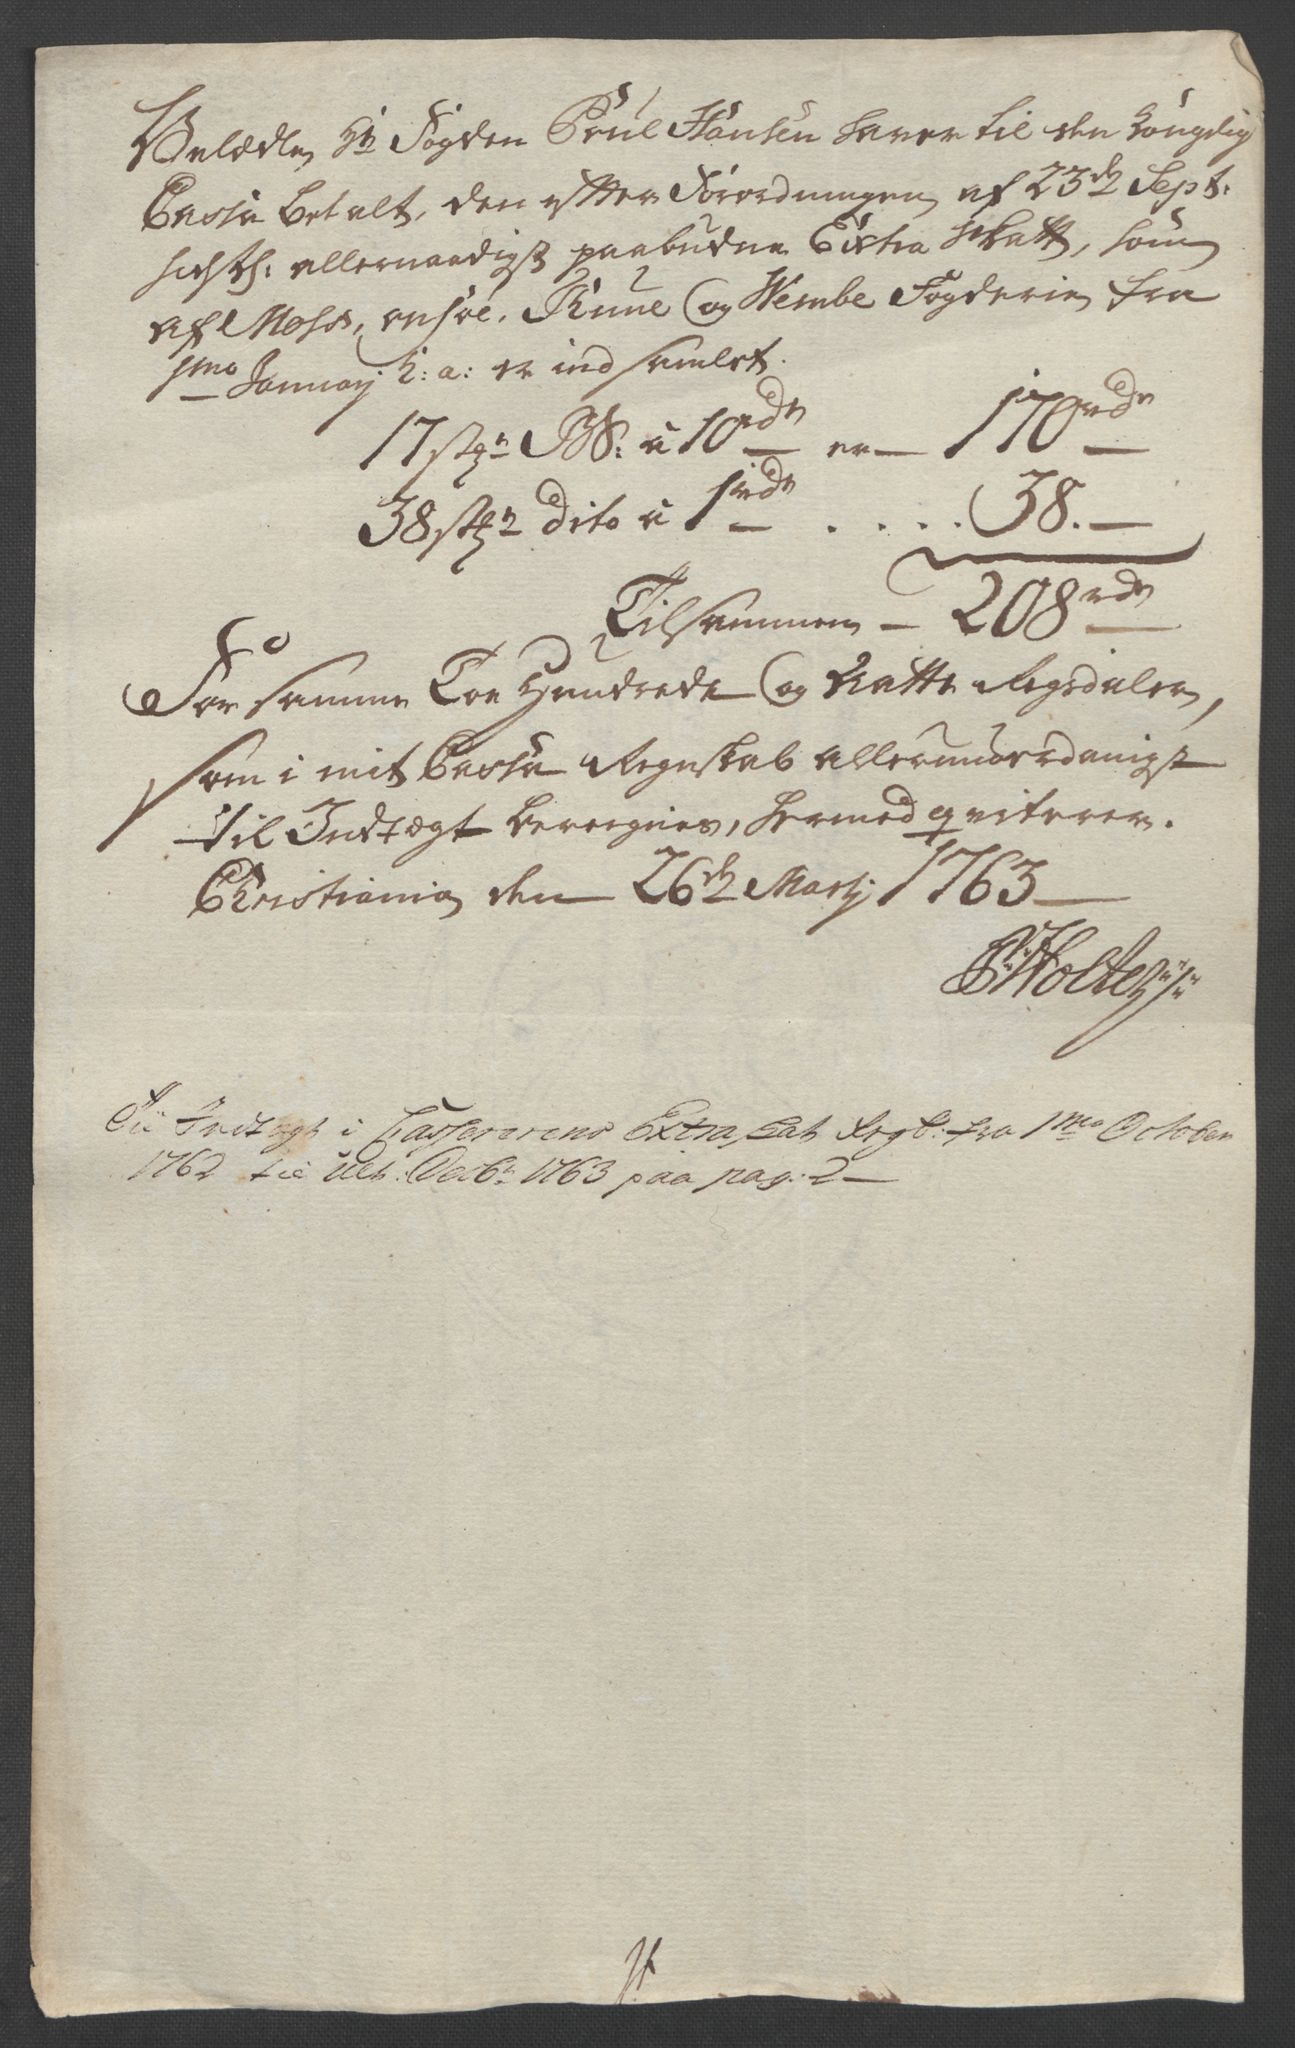 Velædle Hr Fogden Poul Hansen haver til den Kongelig
Cassa betalt, den efter Forordningen af 23de Sept:
sidstl: allernaadigst paabudne Extra Skatt, som
af Moss, Onsøe, Thune og Wembe Fogderie, fra
1mo Januarj h: a: er indsamlet.
17 stkr BS: a 10 rdr er 170 rdr
38 stkr dito a 1 rdr . . . . . 38.
Tilsammen 208 rdr
For samme Toe Hundrede og Aatte Rigsdaler,
som i mit Cassa Regnskab allerunderdanigst
til Indtægt bereignes, hermed qviterer.
Christiania den 26de Martj 1763
P: Holter
Til Indtægt i Cassererens Extra Skat Regsk: fra 1mo October
1762 til Ult: Decbr 1763 paa pag: 2